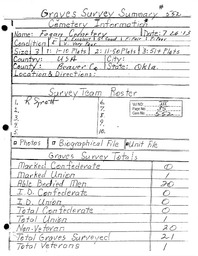 Graves Survey Summary # 552
Cemetery Information
Name: Fegan Cemetery Date: 7 26 13
Condition 5 1: Excellent 2: Good 3: Fair 4: Poor
5: Very Poor
Size: 3 1: 1-10 Plots 2: 11-50 Plots 3: 51+ Plots
Country: USA City:
County: Beaver Co State: Okla.
Location & Directions:
Survey Team Roster
1. K Sprott 6.
2. 7.
3. 8.
4. 9.
5. 10.
Photos Biographical File Unit File
Graves Survey Totals
Marked Confederate 0
Marked Union 1
Able Bodied Men 20
I.D. Confederate 0
I.D. Union 0
Total Confederate 0
Total Union 1
Non-Veteran 20
Total Graves Surveyed 21
Total Veterans 1